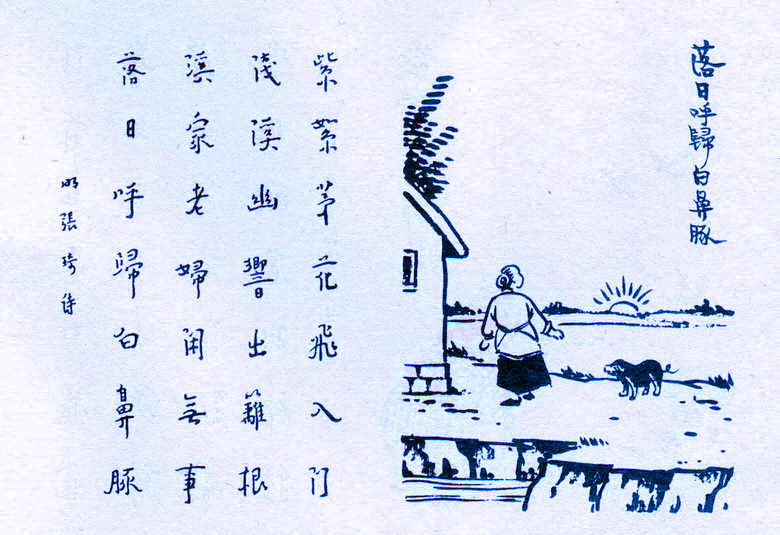 落日呼歸白鼻豚
紫絮茅花飛入门
浅溪幽響出籬根
溪家老婦閑無事
落日呼歸白鼻豚
明張琦诗